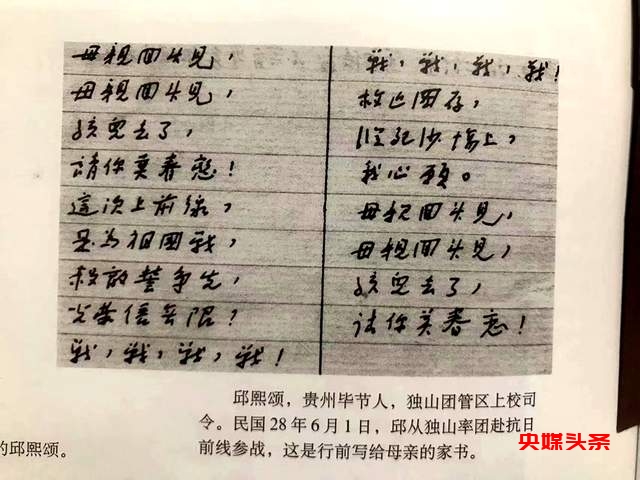 母親回头見，
母親回头見，
孩兒去了，
請你莫眷恋！
這次上前線，
是为祖國戰，
殺敵誓争先，
光荣信無限？
戰，戰，戰，戰！
戰，戰，戰，戰！
救亡图存，
死沙場上，
我心願。
母親回头見，
母親回头見，
孩兒去了，
请你莫眷恋！
邱熙颂，贵州毕节人，独山团管区上校司
令。民国28年6月1日，邱从独山率团赴抗日
前线参战，这是行前写给母亲的家书。
的邱熙颂。
央媒头条